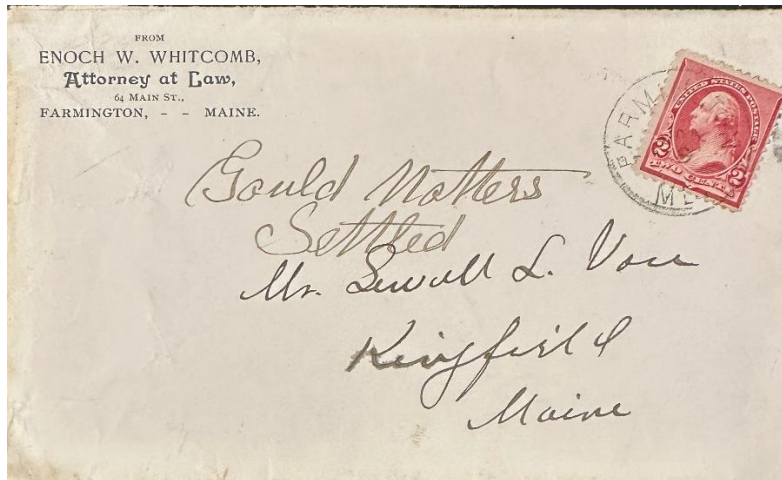 FROM
ENOCH W. WHITCOMB,
Attorney at Law,
64 MAIN ST.,
FARMINGTON, - - MAINE.
UNITED STATES POSTAGE
2 2
TWO CENTS
FARM
ME
Gould Matters
Settled
Mr. Sewall L. Vose
Kingfield
Maine